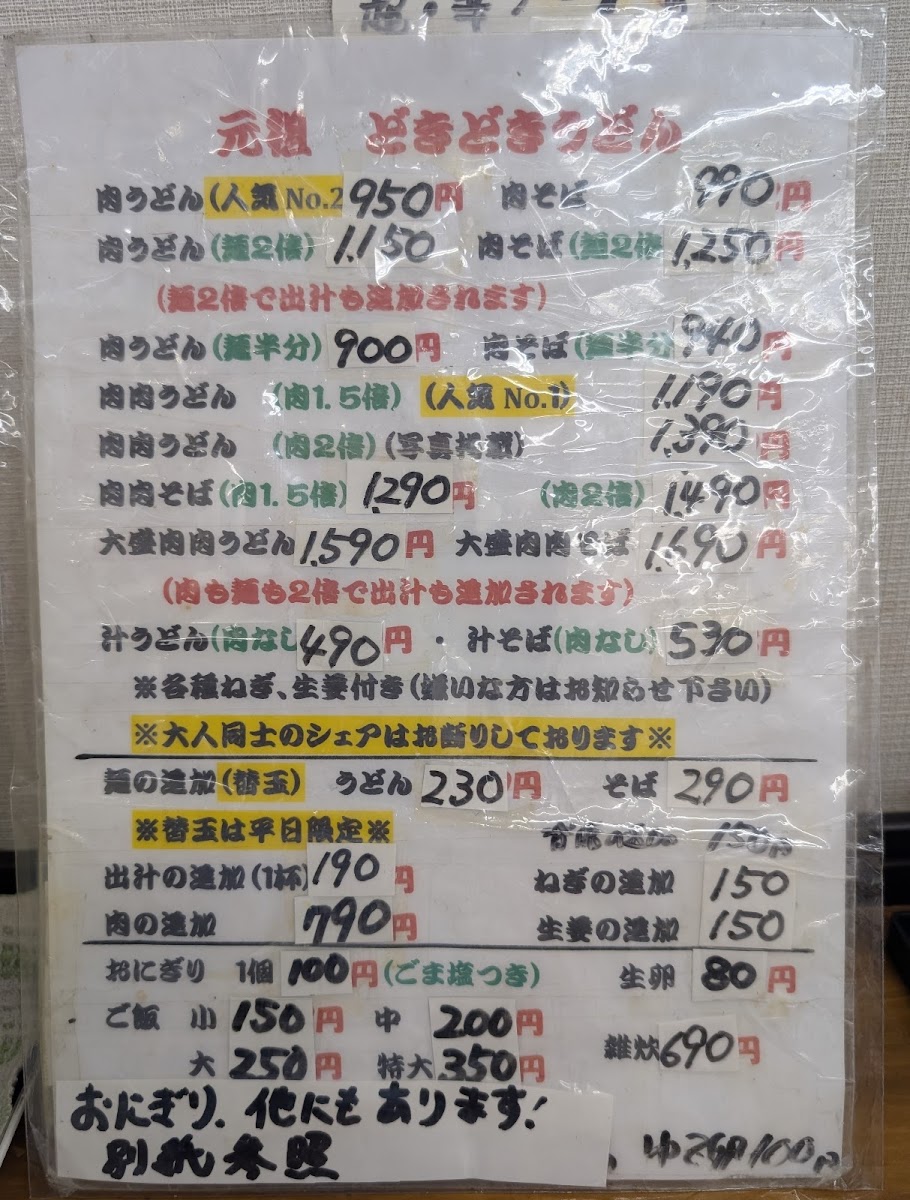 元祖 どきどきうどん
肉うどん(人気 No.2 950円 肉そば 990円
肉うどん(麺2倍) 1,150 肉そば(麺2倍 1,250円
(麺2倍で出汁も追加されます)
肉うどん(麺半分) 900円 肉そば(麺半分 940円
肉肉うどん (肉1.5倍) (人気 No.1) 1,190円
肉肉うどん (肉2倍)(写真掲載) 1,390円
肉肉そば(肉1.5倍) 1,290円 (肉2倍) 1,490円
大盛肉肉うどん 1,590円 大盛肉肉そば 1,690円
(肉も麺も2倍で出汁も追加されます)
汁うどん(肉なし 490円 ・ 汁そば(肉なし) 530円
※各種ねぎ、生姜付き(嫌いな方はお知らせ下さい)
※大人同士のシェアはお断りしております※
麺の追加(替玉) うどん 230円 そば 290円
※替玉は平日限定※ 150円
出汁の追加(1杯) 190円 ねぎの追加 150
肉の追加 790円 生姜の追加 150
おにぎり 1個 100円(ごま塩つき) 生卵 80円
ご飯 小 150円 中 200円 雑炊 690円
大 250円 特大 350円
おにぎり、他にもあります!
別紙参照
100円